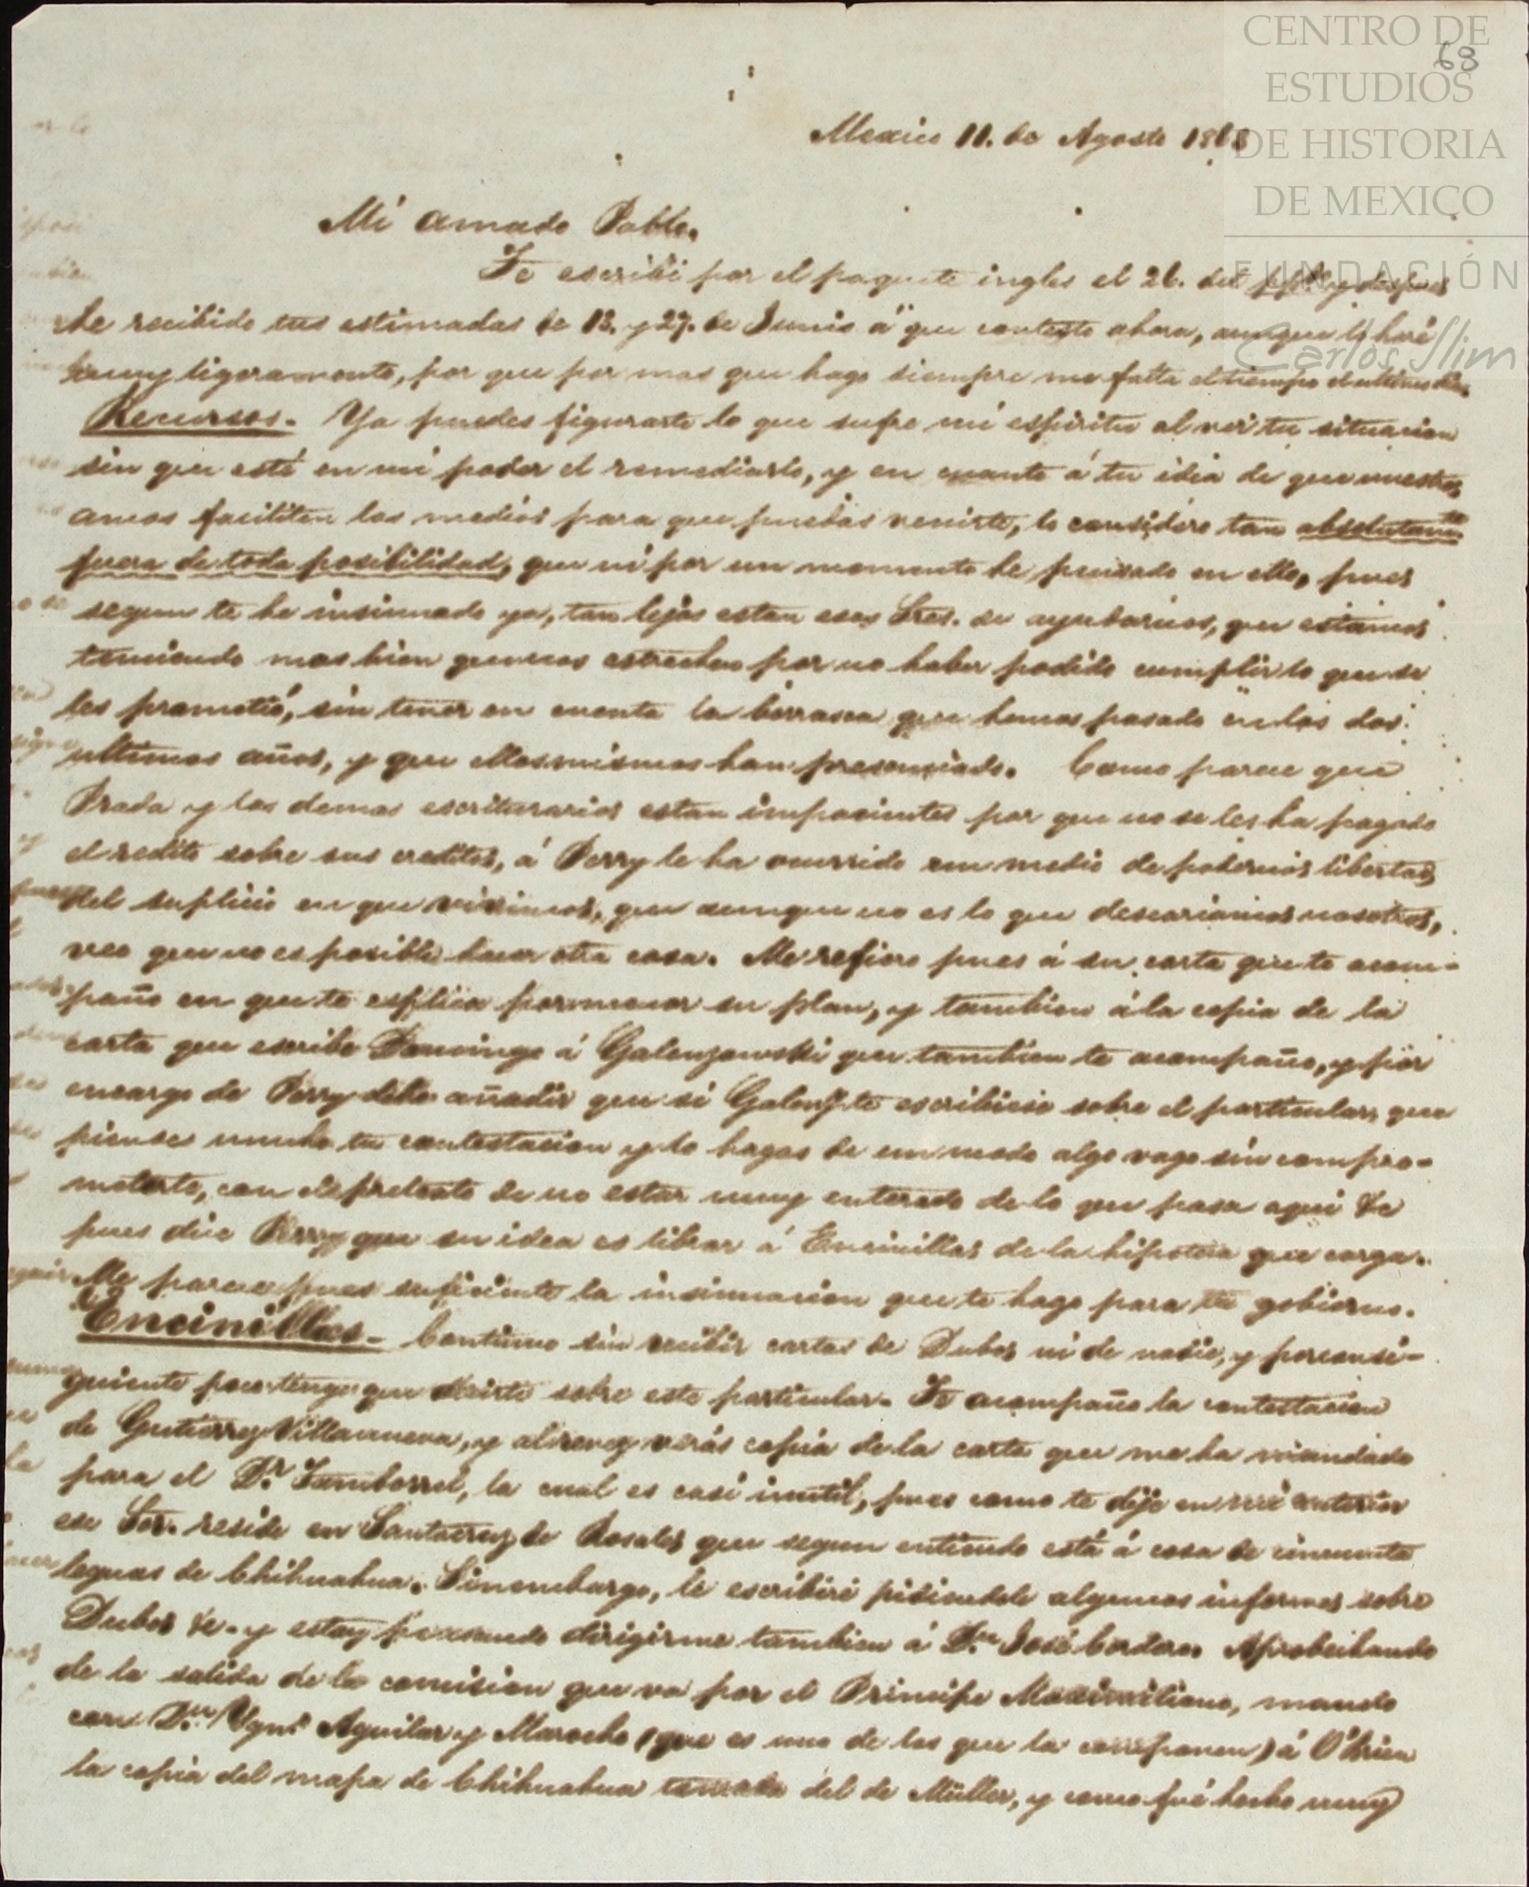 CENTRO DE
ESTUDIOS
DE HISTORIA
DE MEXICO
FUNDACIÓN
Carlos Slim
63
Mexico 11. de Agosto 186
Mi amado Pablo.
Te escribi por el paquete ingles el 26. del ppdo y despues
he recibido tus estimadas de 13. y 27. de Junio á que contesto ahora, aunque lo haré
muy ligeramente, por que por mas que hago siempre me falta el tiempo el ultimo dia.
Recursos. Ya puedes figurarte lo que sufre mi espiritu al ver tu situacion
sin que esté en mi poder el remediarlo, y en cuanto á tu idea de que nuestros
amos faciliten los medios para que puedas venirte, lo considero tan absolutamte
fuera de toda posibilidad, que ni por un momento he pensado en ello, pues
segun te he insinuado ya, tan lejos estan esos Sres. de ayudarnos, que estamos
temiendo mas bien que nos estrechen por no haber podido cumplir lo que se
les prometió, sin tener en cuenta la borrasca que hemos pasado en los dos
ultimos años, y que ellos mismos han presenciado. Como parece que
Prada y los demas escriturarios estan impacientes por que no se les ha pagado
el redito sobre sus creditos, á Perry le ha ocurrido un medio de podernos libertar
del suplicio en que vivimos, que aunque no es lo que deseariamos nosotros,
veo que no es posible hacer otra cosa. Me refiero pues á su carta que te acom-
paño en que te esplica pormenor su plan, y tambien á la copia de la
carta que escribe Domingo á Galenzowski que tambien te acompaño, y por
encargo de Perry debo añadir que si Galenz. te escribiese sobre el particular, que
pienses mucho tu contestacion y lo hagas de un modo algo vago sin compro-
meterte, con el pretexto de no estar muy enterado de lo que pasa aqui &c
pues dice Perry que su idea es librar á Encinillas de la hipoteca que carga.
Me parece pues suficiente la insinuacion que te hago para tu gobierno.
Encinillas. Continuo sin recibir cartas de Dubos ni de nadie, y por consi-
guiente poco tengo que decirte sobre este particular. Te acompaño la contestacion
de Gutierrez Villanueva, y al revez verás copia de la carta que me ha mandado
para el Dr. Tamborrel, la cual es casi inutil, pues como te dije en mi anterior
ese Sor. reside en Santa Cruz de Rosales que segun entiendo está á cosa de cincuenta
leguas de Chihuahua. Sin embargo, le escribiré pidiendole algunos informes sobre
Dubos &c. y estoy pensando dirigirme tambien á Dn. José Cordero. Aprobechando
de la salida de la comision que va por el Principe Maximiliano, mando
con Dn. Ygno. Aguilar y Marocho (que es uno de los que la componen) á O'Brien
la copia del mapa de Chihuahua tomada del de Müller, y como fué hecho muy